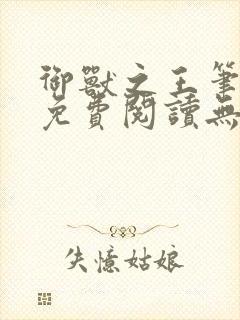 御獸之王筆
免費閱讀無
失憶姑娘